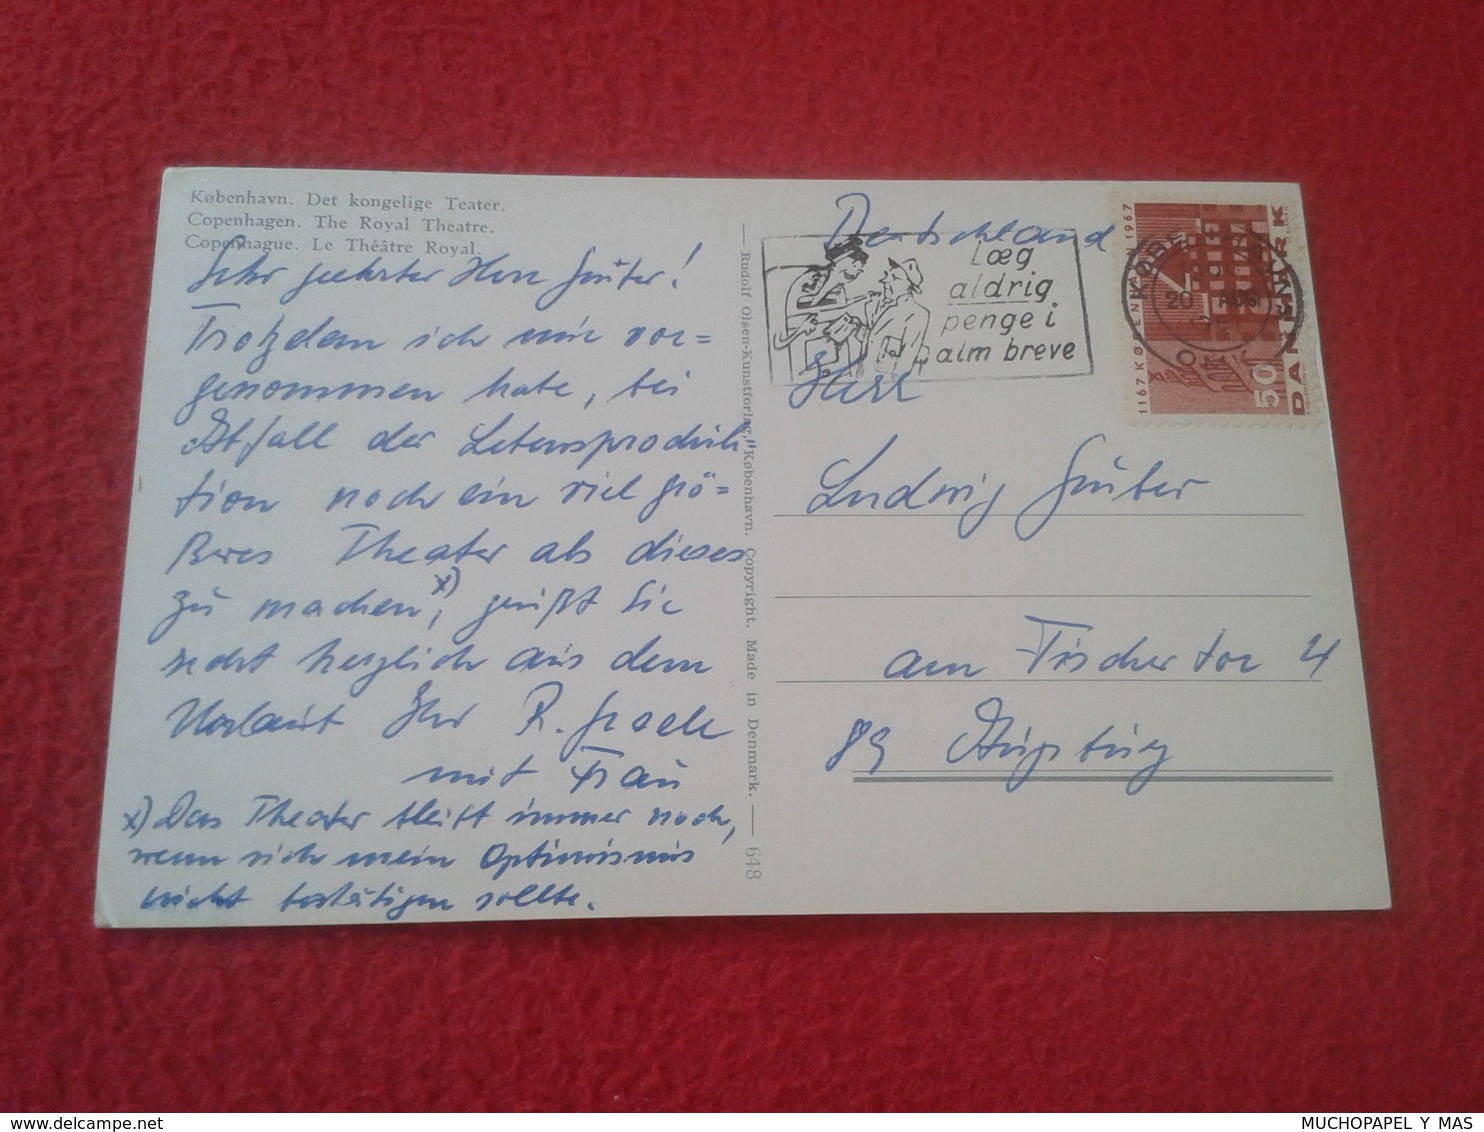 København. Det kongelige Teater.
Copenhagen. The Royal Theatre.
Copenhague. Le Théâtre Royal.
Sehr geehrter Herr Gruber!
Trotzdem ich mir vor=
genommen hatte, bei
Abfall der Lebensproduk
tion noch ein viel grö=
ßeres Theater als dieses
zu machen x), grüßt Sie
recht herzlich aus dem
Urlaub Ihr R.
mit Frau
x) Das Theater bleibt immer noch,
wenn sich mein Optimismus
nicht bestätigen sollte.
— Rudolf Olsen-Kunstforlag, København. Copyright. Made in Denmark. — 648
Deutschland
Læg
aldrig
penge i
alm breve
1167 KØBENHAVN 1967
50
DANMARK
Herr
Ludwig Gruber
am Fischertor 4
89 Augsburg
MUCHOPAPEL Y MAS